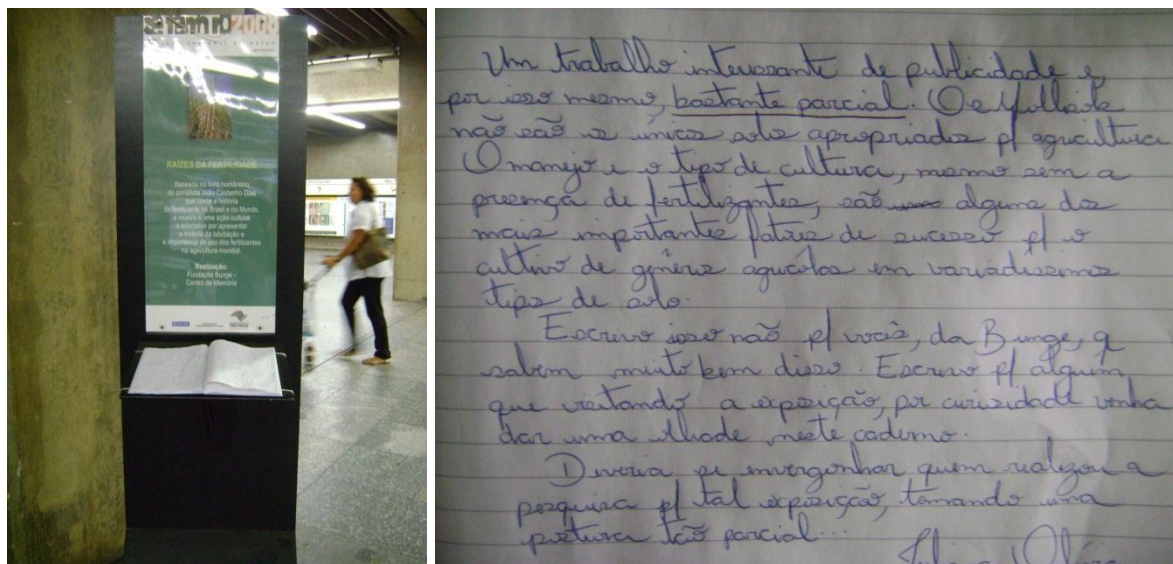 RAÍZES DA FERTILIDADE
Baseada no livro homônimo
do jornalista João Castanho Dias
que conta a história
do fertilizante no Brasil e no Mundo,
a mostra é uma ação cultural
e educativa por apresentar
a história da adubação e
a importância do uso dos fertilizantes
na agricultura mundial.
Realização:
Fundação Bunge -
Centro de Memória
Um trabalho interessante de publicidade e,
por isso mesmo, bastante parcial. Os
não são os únicos solos apropriados p/ agricultura
O manejo e o tipo de cultura, mesmo sem a
presença de fertilizantes, são alguns dos
mais importantes fatores de sucesso p/ o
cultivo de gêneros agrícolas em variadíssimos
tipos de solo.
Escrevo isso não p/ vocês, da Bunge, q
sabem muito bem disso. Escrevo p/ alguém
que visitando a exposição, por curiosidade venha
dar uma olhada neste caderno.
Deveria se envergonhar quem realizou a
pesquisa p/ tal exposição, tomando uma
postura tão parcial...